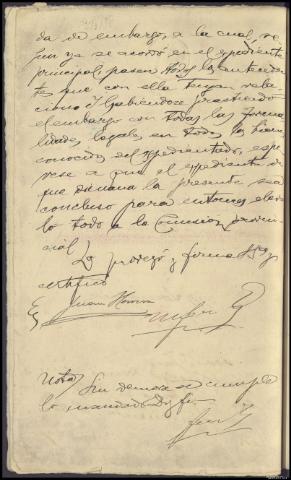 da de embargo, a la cual, se-
gun ya se acordó en el expediente
principal, pasen todos los anteceden-
tes que con ella tengan rela-
cion. Y habiendose practicado
el embargo con todas las forma-
lidades legales en todos los bienes
conocidos del expedientado, espe-
rese a que el expediente de
que dimana la presente sea
concluso para entonces elevar-
lo todo a la Comision provin-
cial
Lo proveyó y firma S.Sª y
certifico
Juan
Nota/ Sin demora se cumple
lo mandado. Doy fe